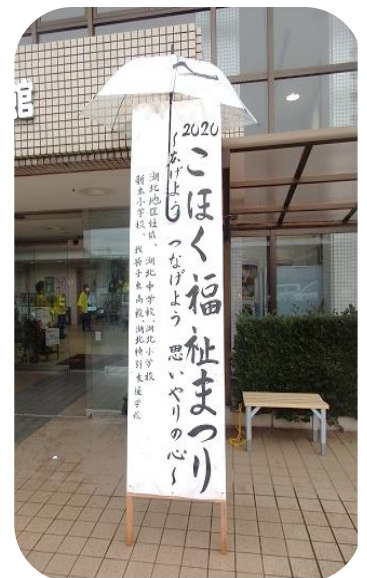 館
2020
こほく福祉まつり
～広げよう つなげよう 思いやりの心～
湖北地区社協、湖北中学校、湖北小学校
新木小学校、我孫子東高校、湖北特別支援学校